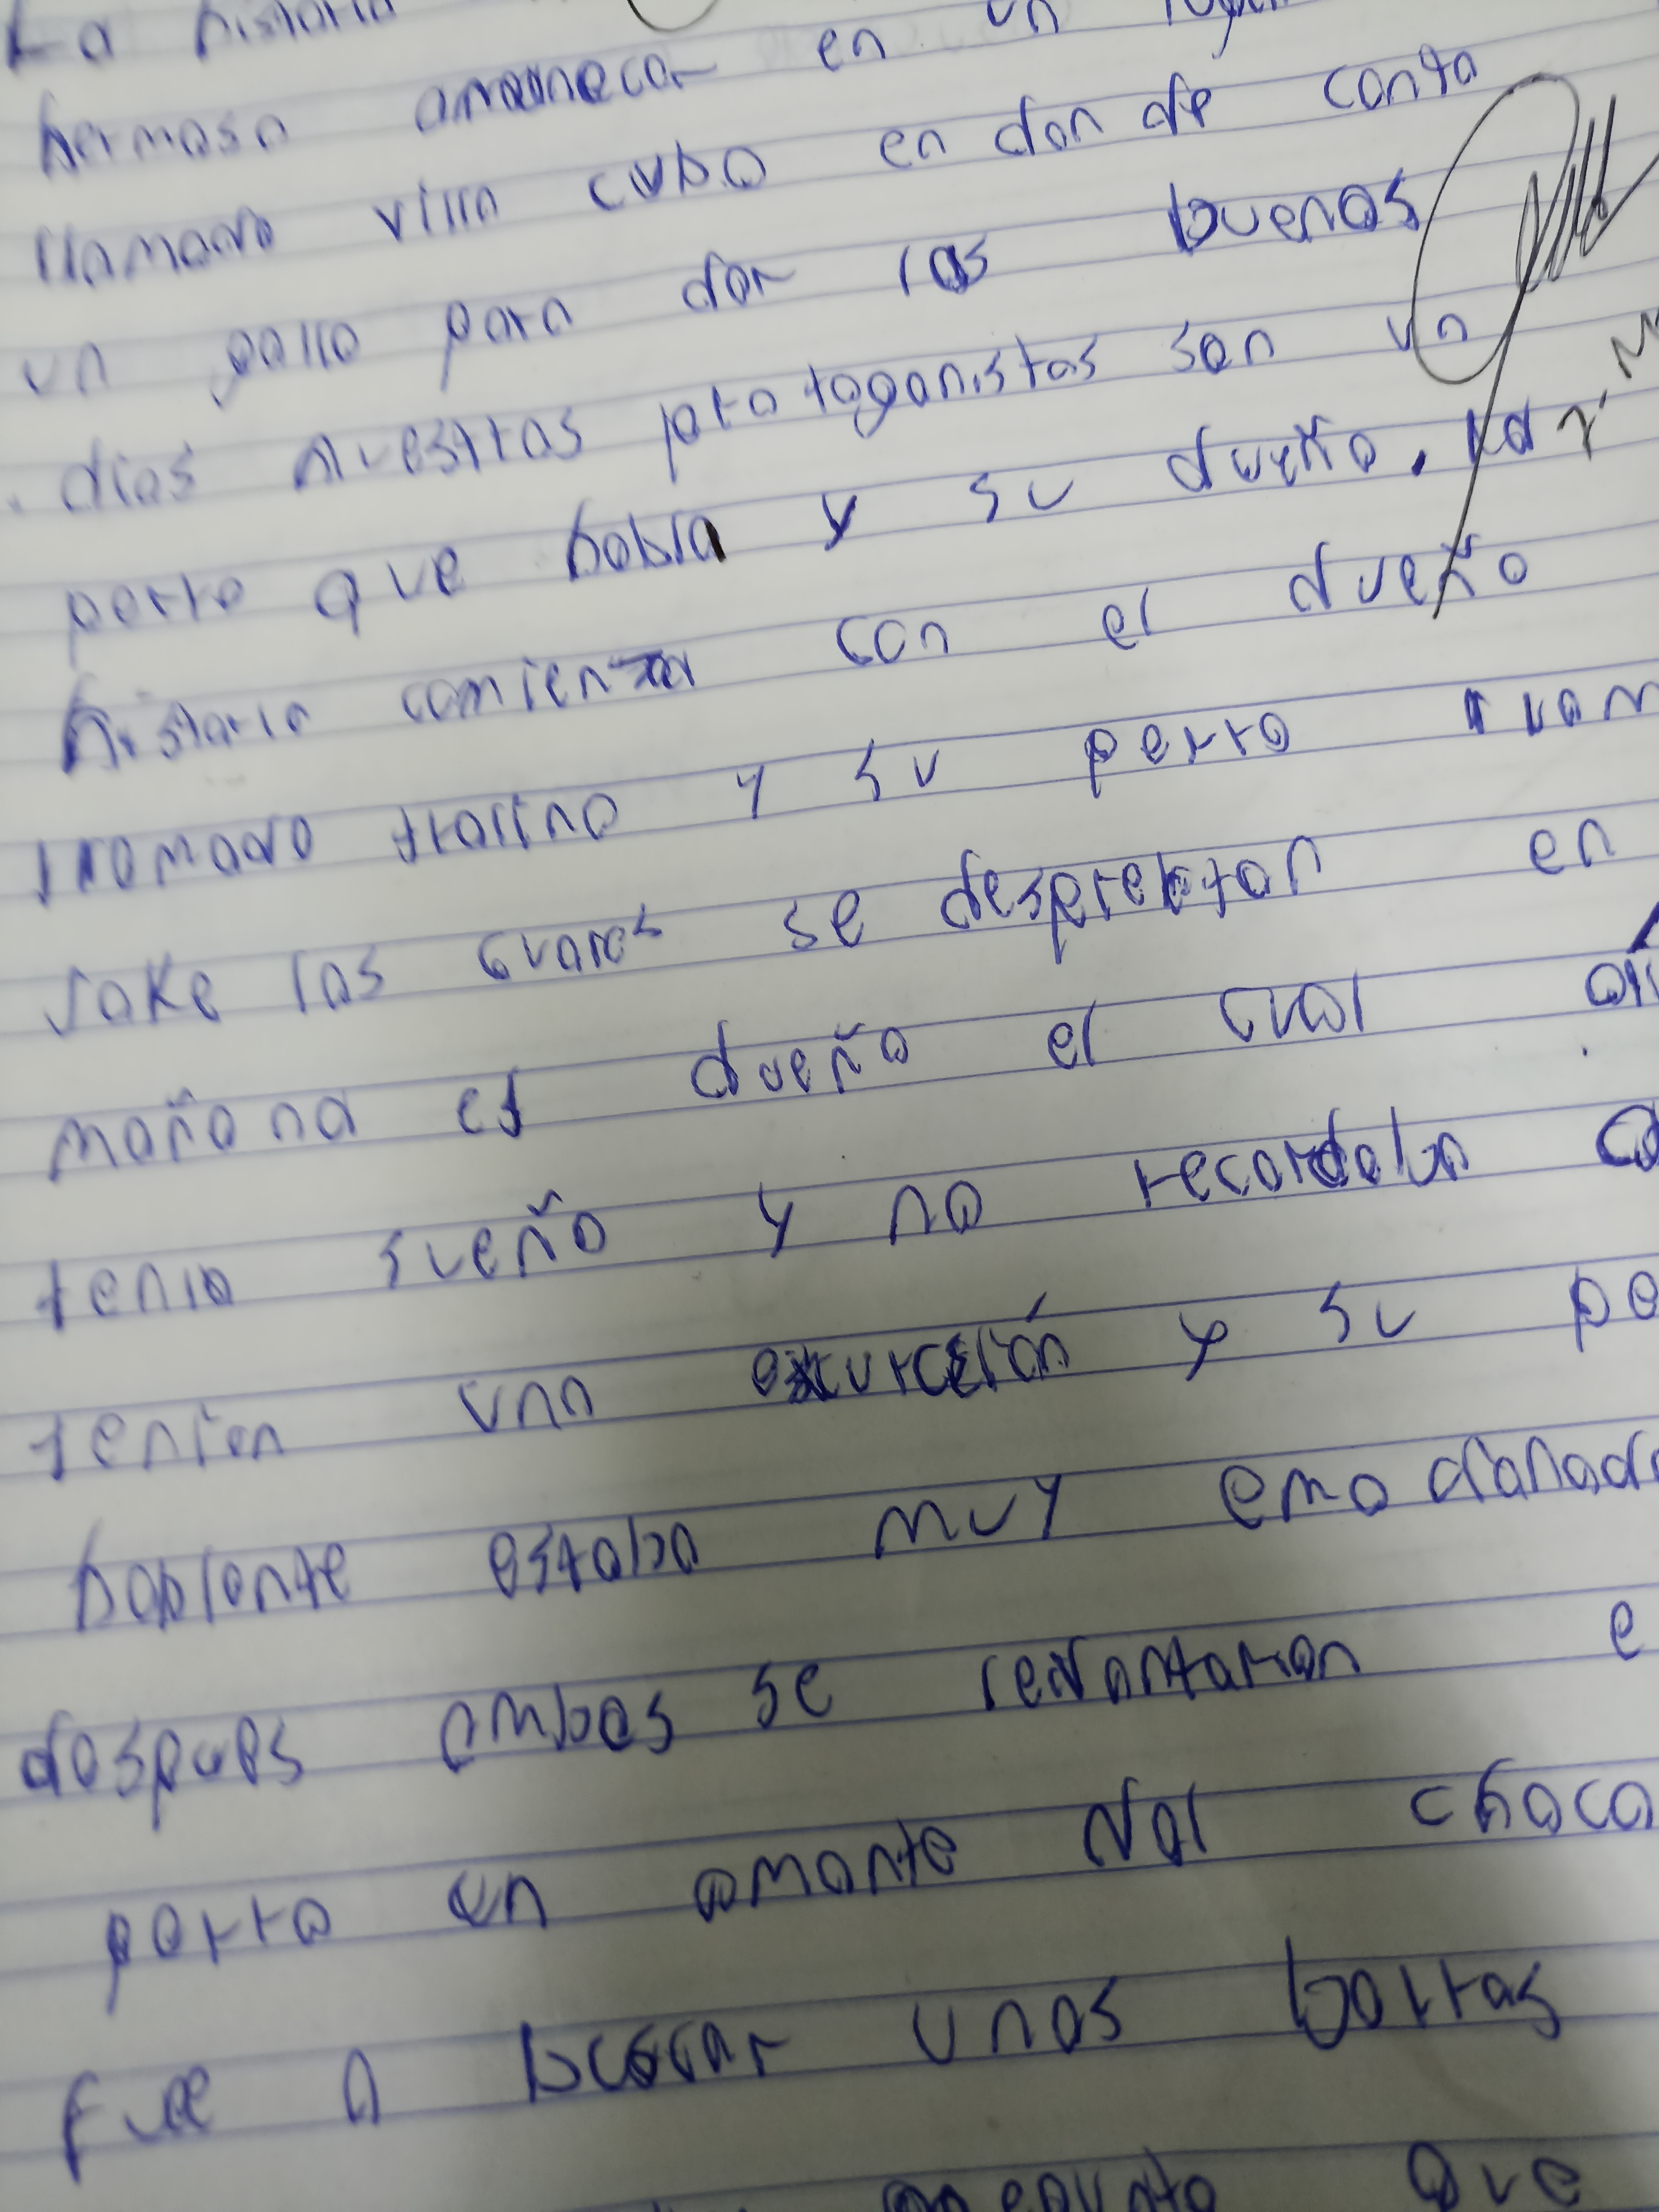 La historia en un
hermoso amanecer en un lugar
llamado villa cubo en don de canta
un gallo para dar los buenos
dias nuestros protoganistas son un
perro que habla y su dueño. la
historia comienza con el dueño
llamado trolino y su perro
Jake los cuales se despiertan en
mañana el dueño el cual
tenia sueño y no recordaba
tenian una excurción y su pe
hablante estaba muy emocianado
despues ambos se levantaron e
perro un amante del choco
fue a buscar unas barras
que